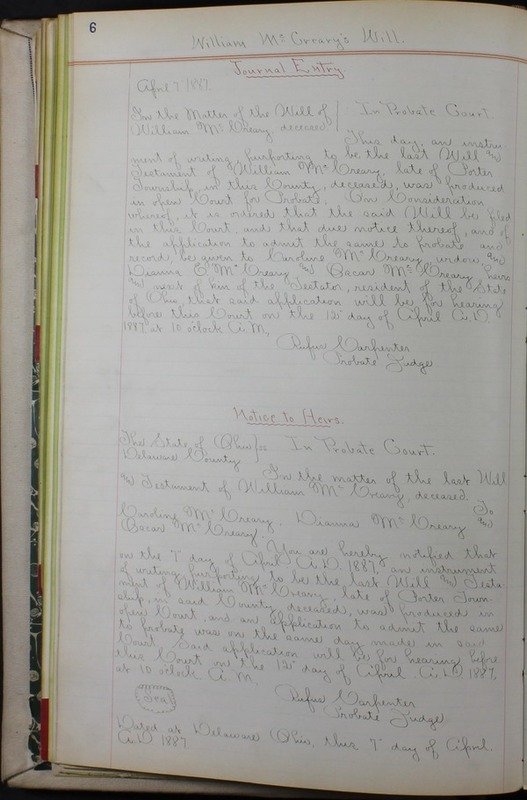 6
William McCreary's Will.
Journal Entry
April 7 1887.
In the Matter of the Will of
William McCreary deceased
In Probate Court.
This day, an instru-
ment of writing, purporting to be the last Will and
Testament of William McCreary, late of Porter
Township, in this County, deceased, was produced
in open Court for Probate, On Consideration
whereof, it is ordered that the said Will be filed
in this Court, and that due notice thereof, and of
the application to admit the same to probate and
record, be given to Caroline McCreary, widow and
Dianna McCreary and Oscar McCreary heirs
and next of kin of the Testator, resident of the State
of Ohio, that said application will be for hearing
before this Court on the 12" day of April A.D.
1887 at 10 oclock A.M,
Rufus Carpenter
Probate Judge
Notice to Heirs.
The State of Ohio ss In Probate Court.
Delaware County
In the matter of the last Will
and Testament of William McCreary, deceased.
To
Caroline McCreary, Dianna McCreary and
Oscar McCreary.
You are hereby notified that
on the 7" day of April A.D. 1887, an instrument
of writing purporting to be the last Will and Testa-
ment of William McCreary, late of Porter Town-
ship, in said County, deceased, was produced in
open Court, and an application to admit the same
to probate was on the same day made in said
Court. Said application will be for hearing before
this Court on the 12" day of April. A.D. 1887,
at 10 oclock. A.M.
Seal
Rufus Carpenter
Probate Judge
Dated at Delaware Ohio, this 7" day of April.
A.D. 1887